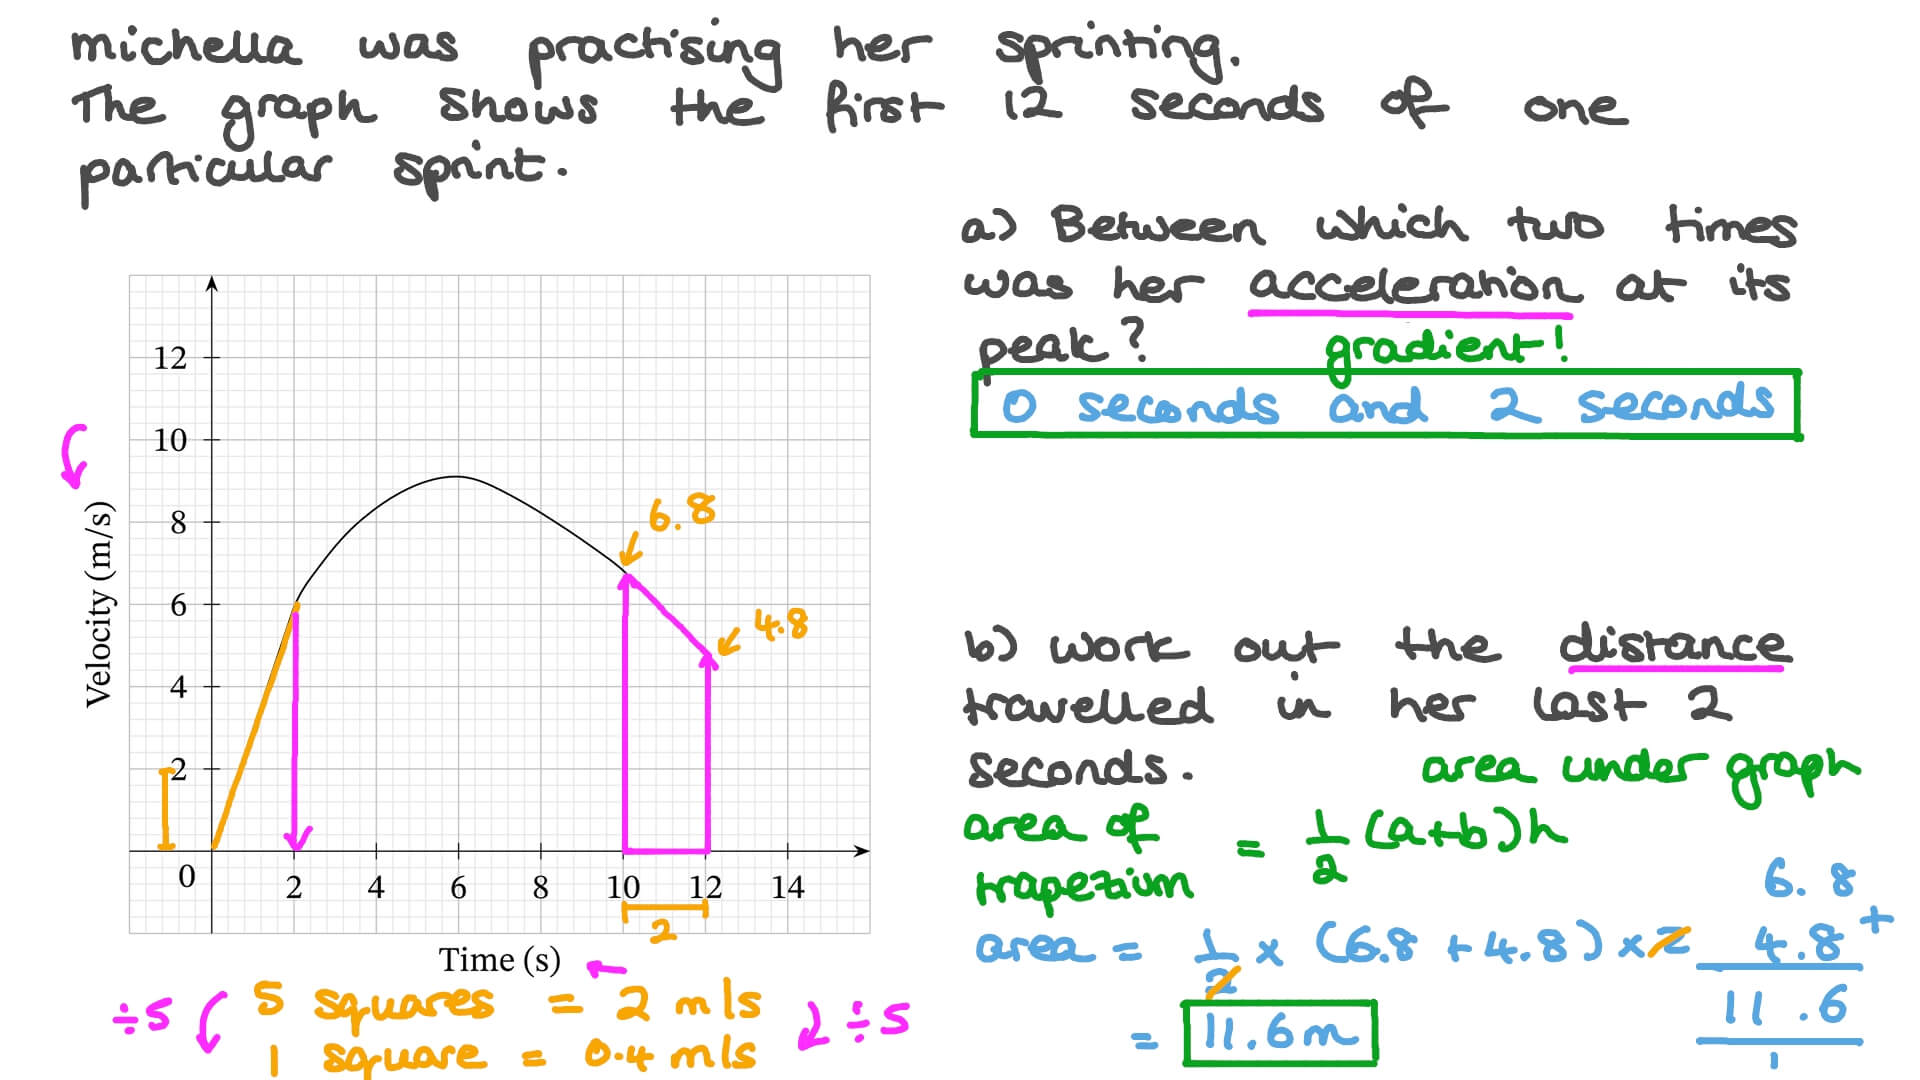 michella was practising her sprinting.
The graph shows the first 12 seconds of one
particular sprint.
a) Between which two times
was her acceleration at its
peak? gradient!
0 seconds and 2 seconds
12
10
8
6
4
2
0
2 4 6 8 10 12 14
Velocity (m/s)
Time (s)
6.8
4.8
2
÷5 5 squares = 2 m/s ÷5
1 square = 0.4 m/s
b) work out the distance
travelled in her last 2
seconds. area under graph
area of trapezium = 1/2 (a+b)h
area = 1/2 × (6.8 + 4.8) × 2
= 11.6m
6.8
4.8 +
11.6
1